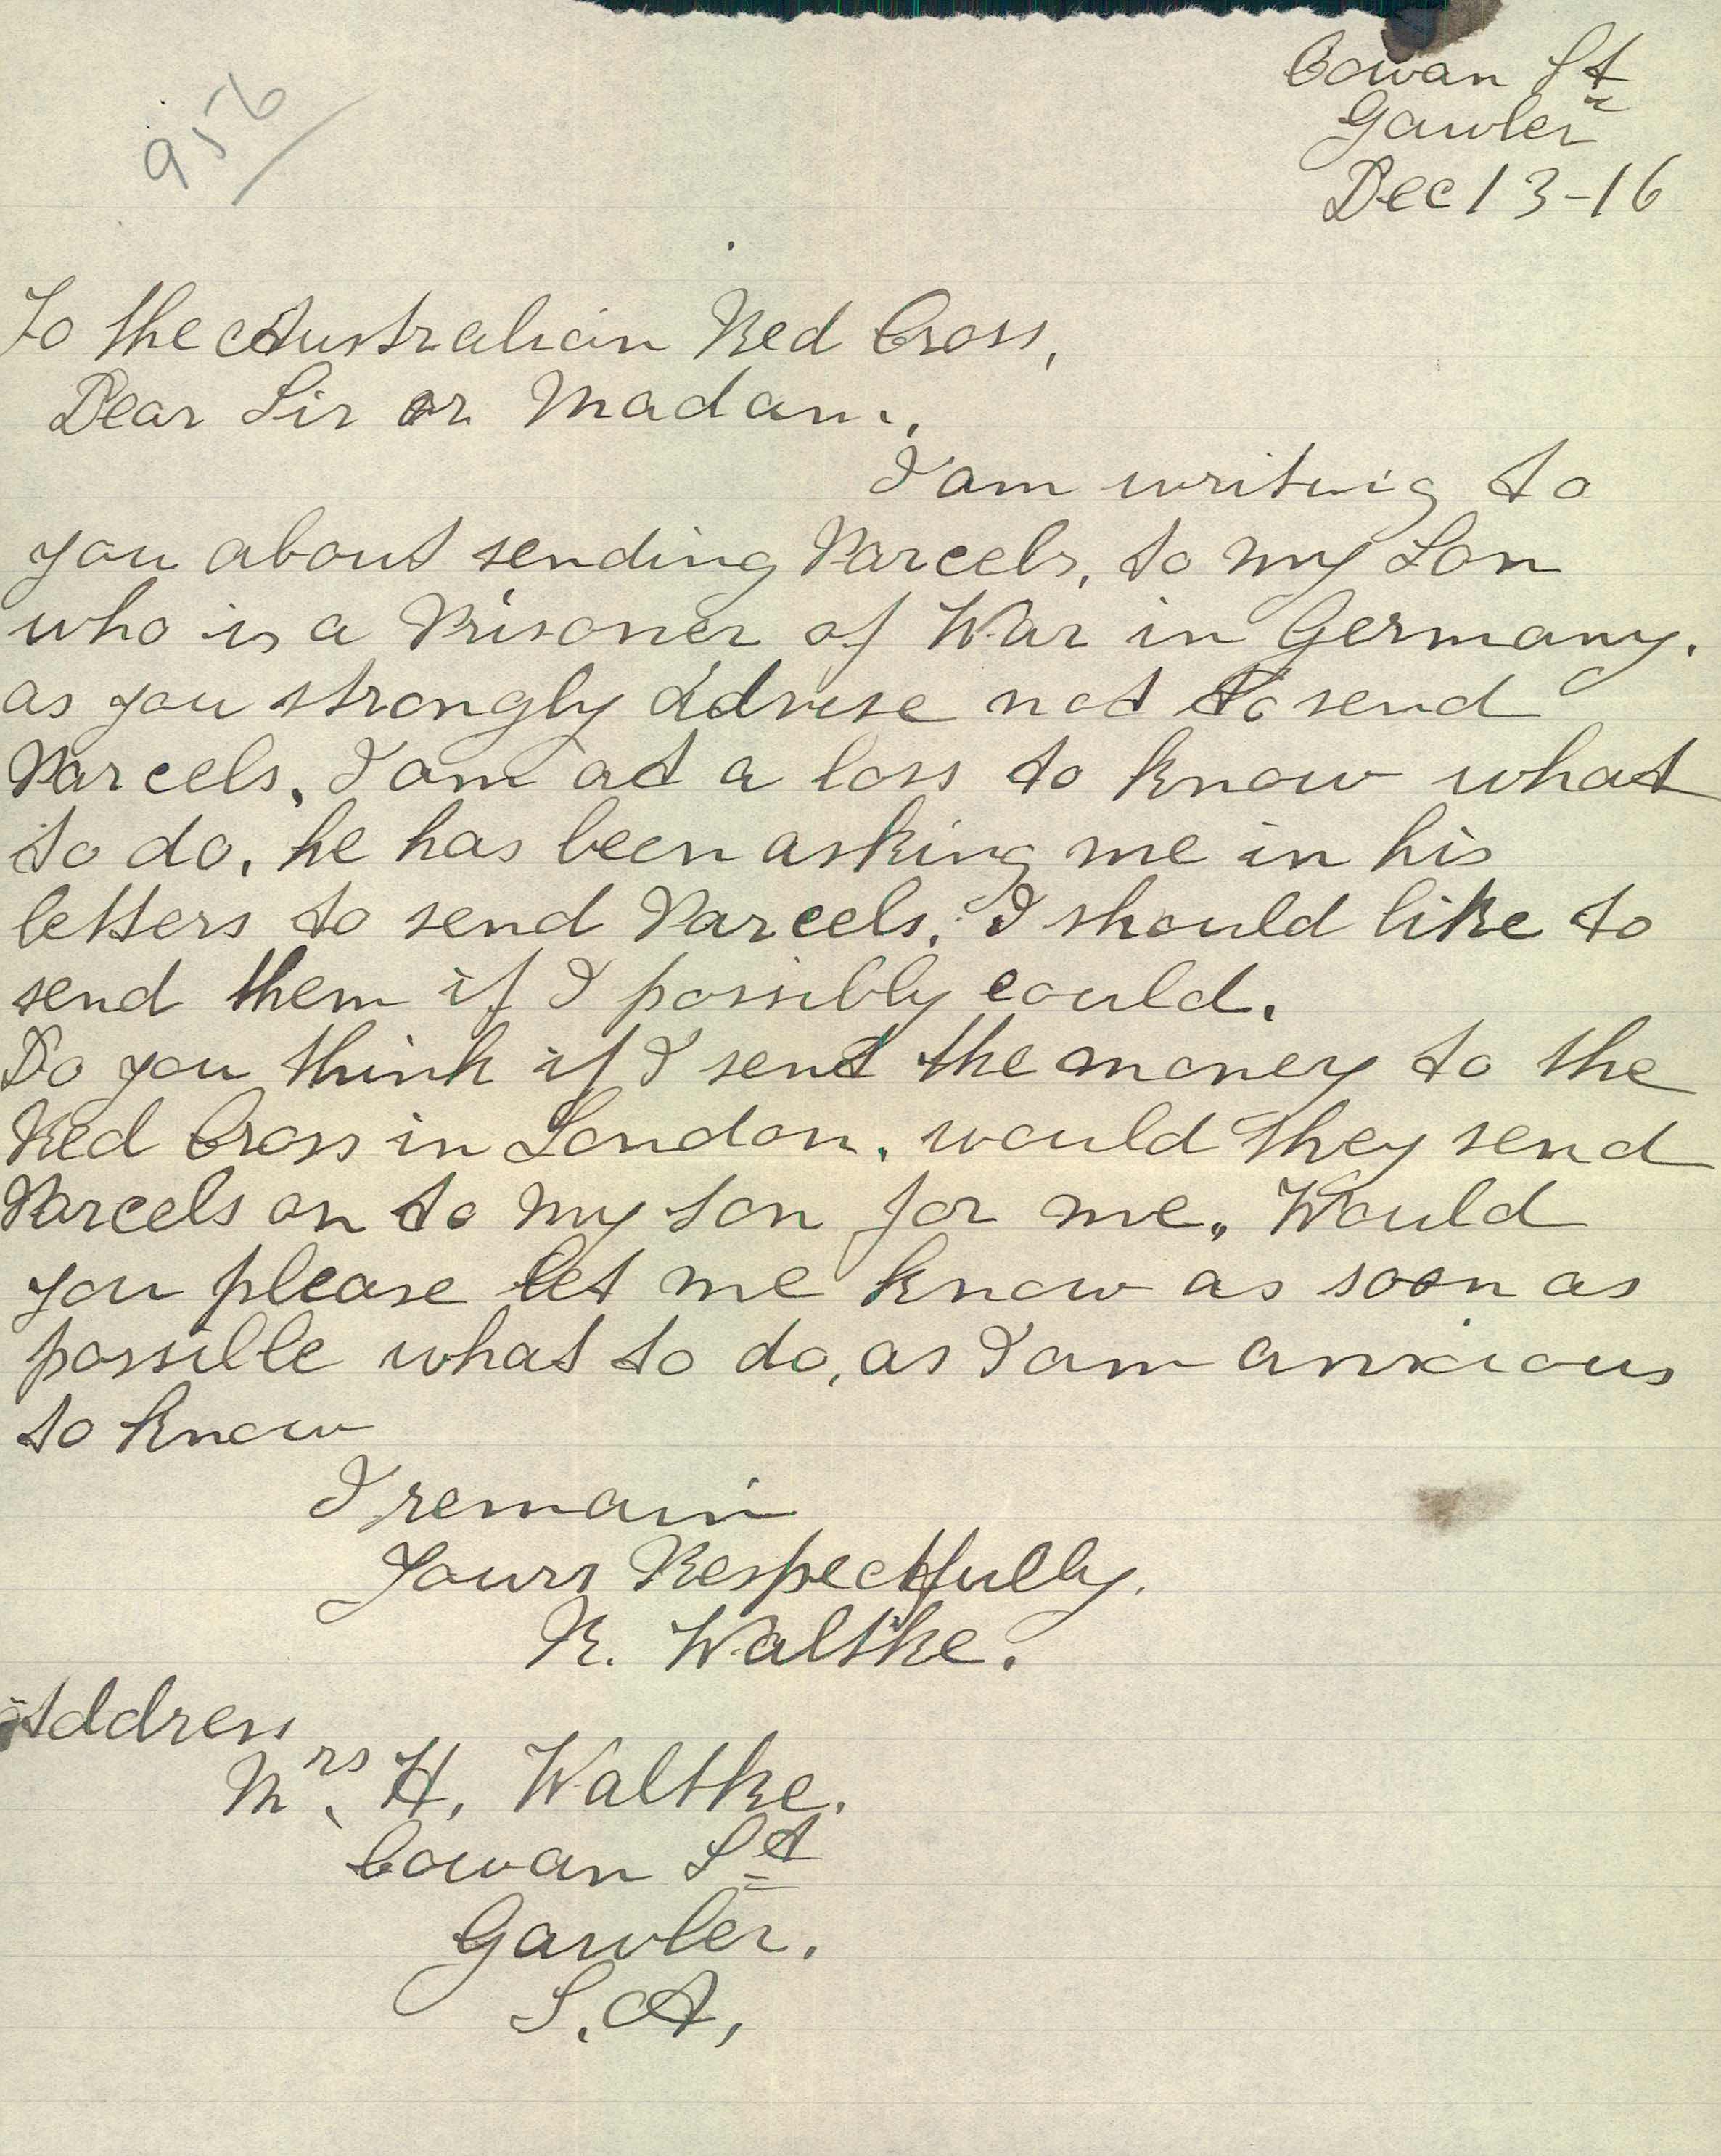 Cowan St
Gawler
Dec 13-16
956/
To the Australian Red Cross,
Dear Sir or Madam.,
I am writing to
you about sending Parcels, to my Son
who is a Prisoner of War in Germany.
as you strongly Advise not to send
Parcels, I am at a loss to know what
to do, he has been asking me in his
letters to send Parcels. I should like to
send them if I possibly could.
Do you think if I sent the money to the
Red Cross in London, would they send
Parcels on to my son for me. Would
you please let me know as soon as
possible what to do, as I am anxious
to know
I remain
Yours Respectfully.
R. Waltke.
Address
Mrs. H. Waltke.
Cowan St
Gawler.
S. A,